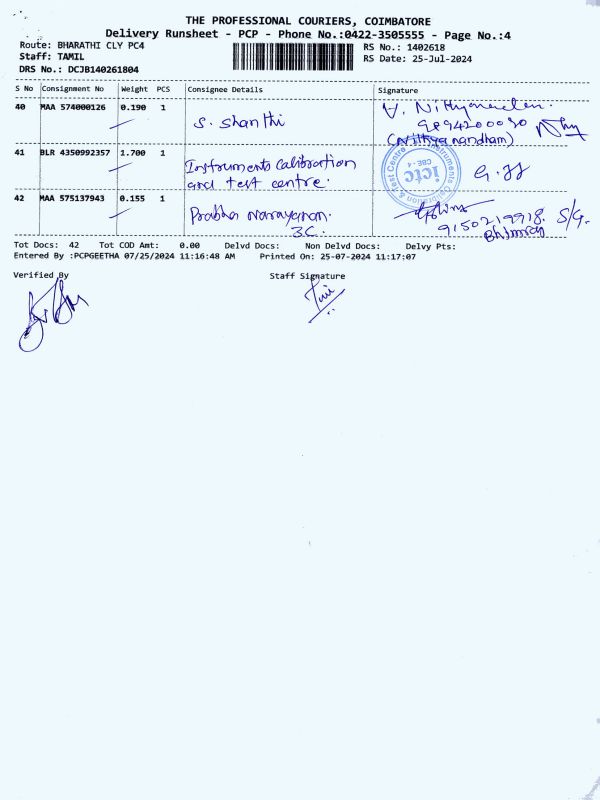 THE PROFESSIONAL COURIERS, COIMBATORE
Delivery Runsheet - PCP - Phone No.:0422-3505555 - Page No.:4
Route: BHARATHI CLY PC4
RS No.: 1402618
Staff: TAMIL
RS Date: 25-Jul-2024
DRS No.: DCJB140261804
S No Consignment No Weight PCS Consignee Details Signature
40 MAA 574000126 0.190 1 S. Shanthi
(Nithyanandham)
41 BLR 4350992357 1.700 1 Instruments Calibration
and test centre.
Instruments Calibration & Test Centre
ictc
CBE - 4
42 MAA 575137943 0.155 1 Prabha Narayanan.
3C.
9150219918. S/G.
Tot Docs: 42 Tot COD Amt: 0.00 Delvd Docs: Non Delvd Docs: Delvy Pts:
Entered By :PCPGEETHA 07/25/2024 11:16:48 AM Printed On: 25-07-2024 11:17:07
Verified By Staff Signature